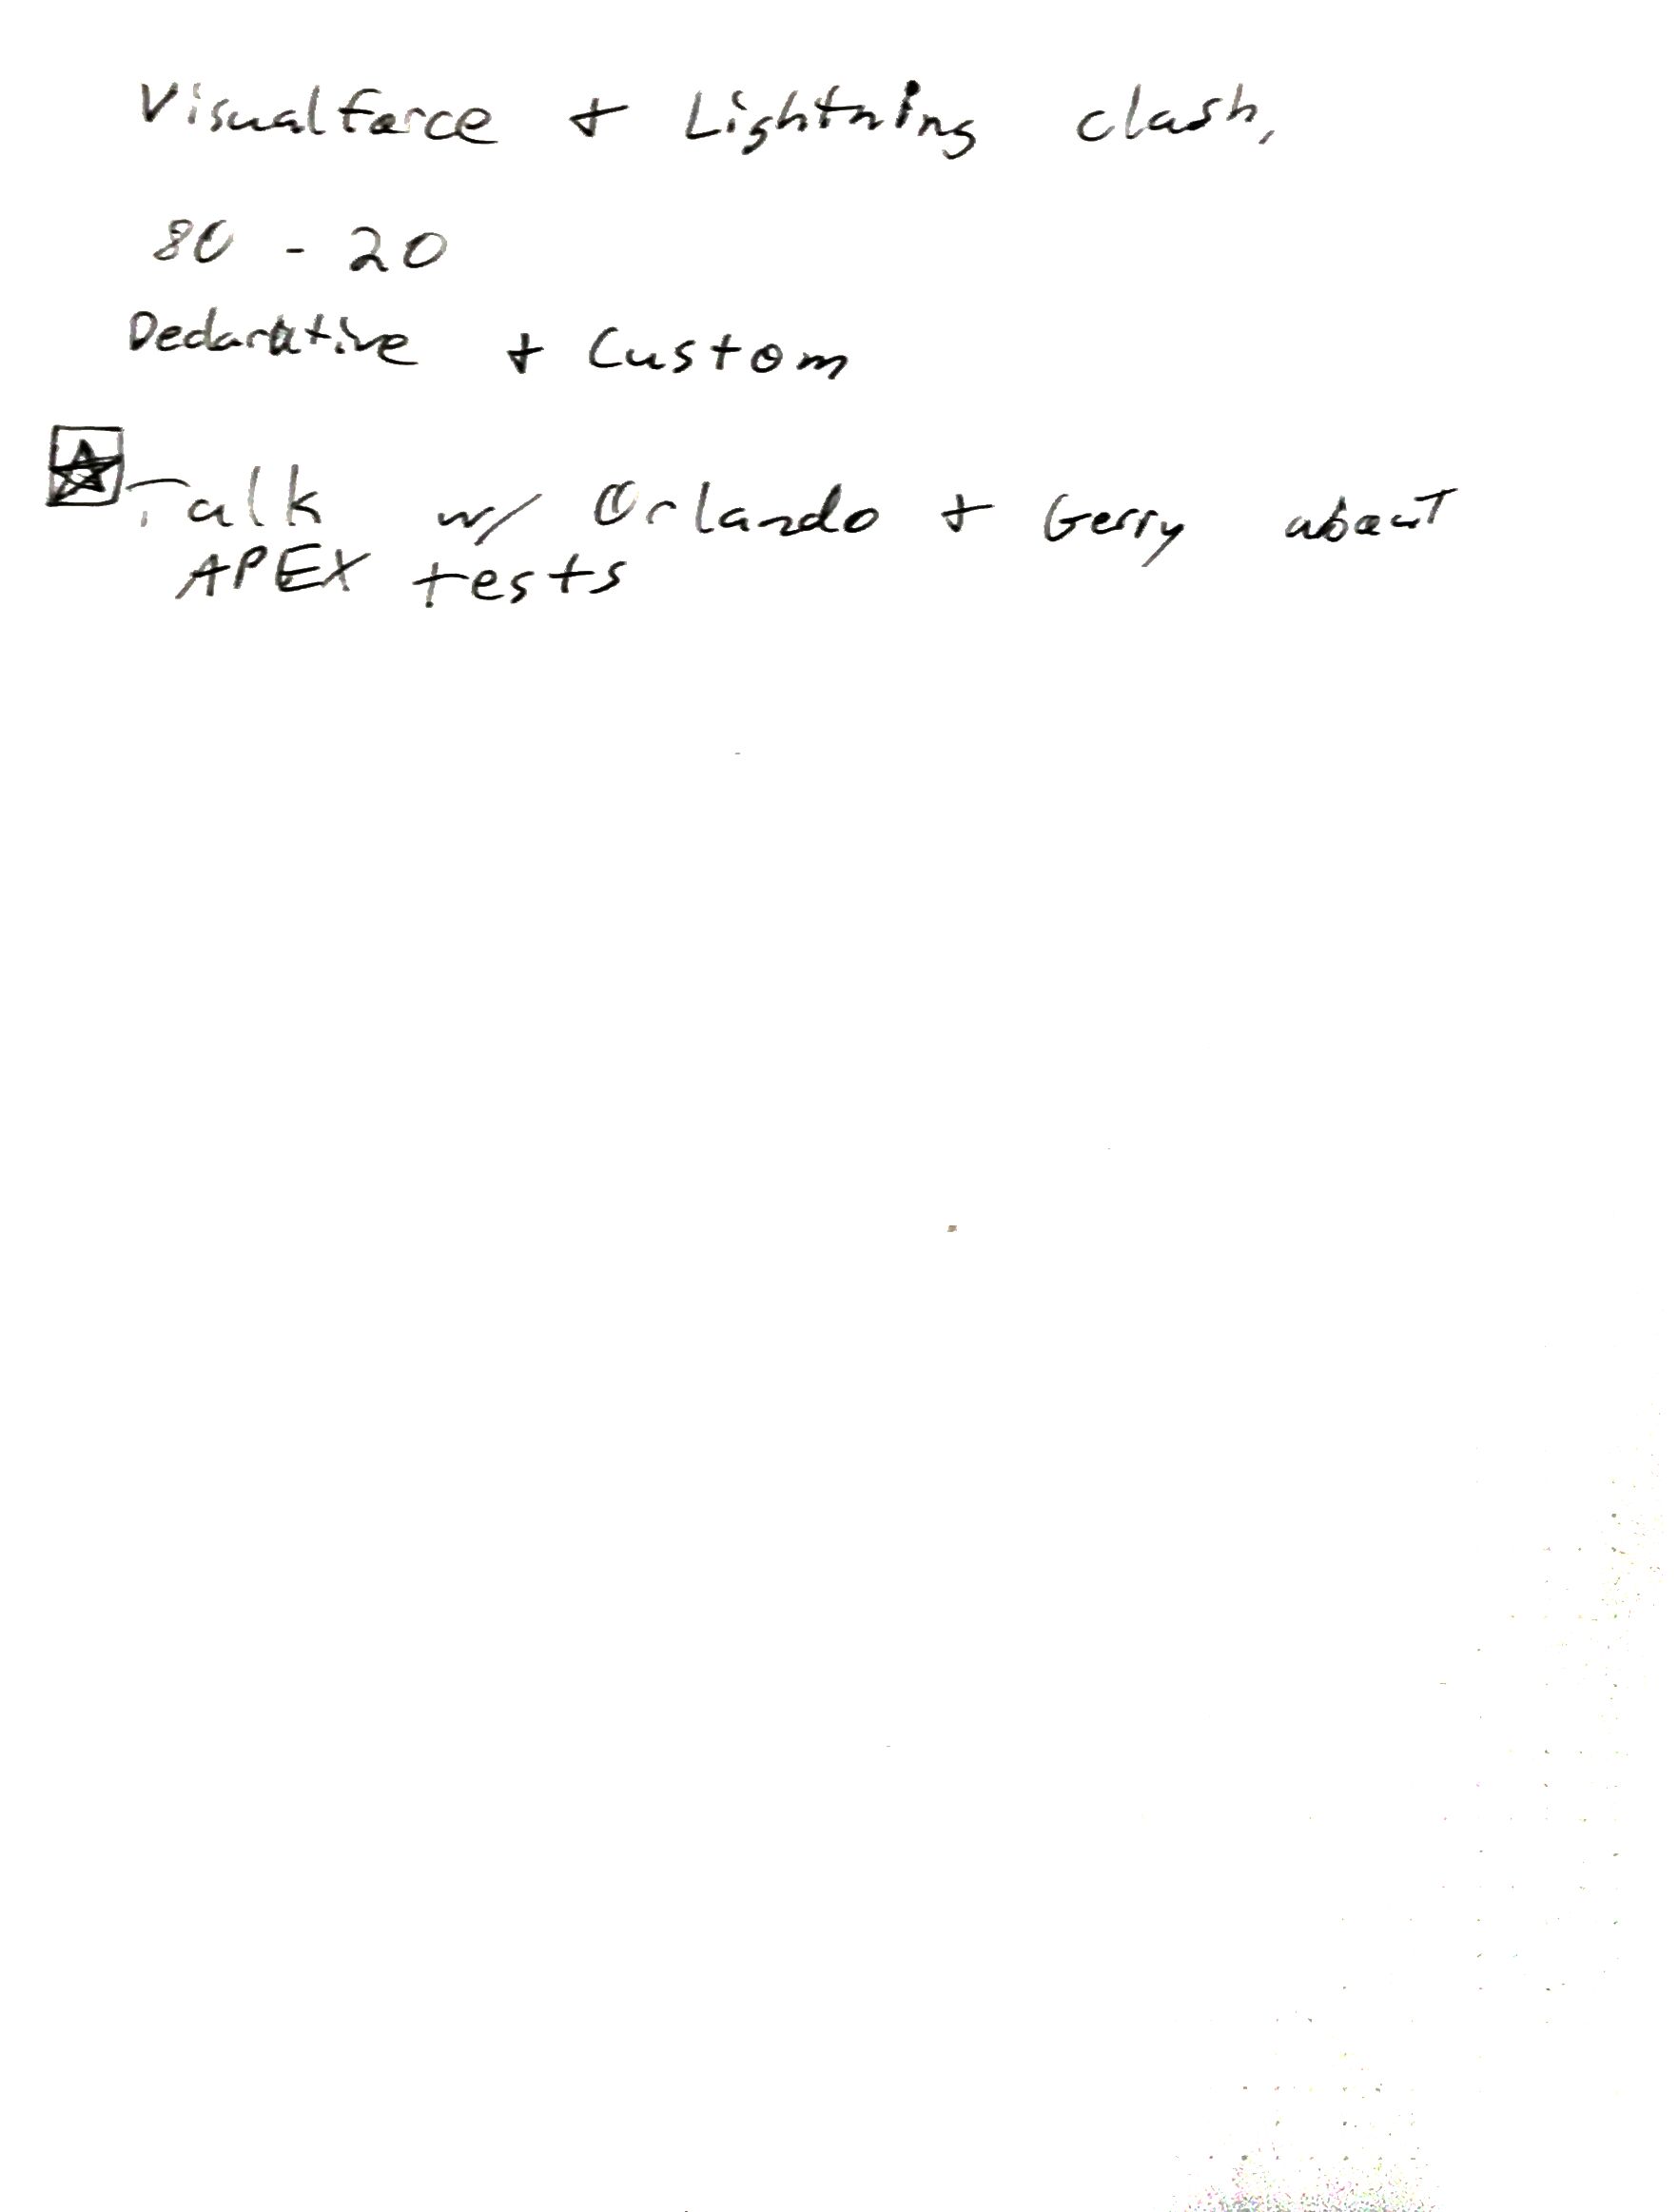 Visualforce + Lightning clash,
80 - 20
Declarative + Custom
Talk w/ Orlando + Gerry about
APEX tests